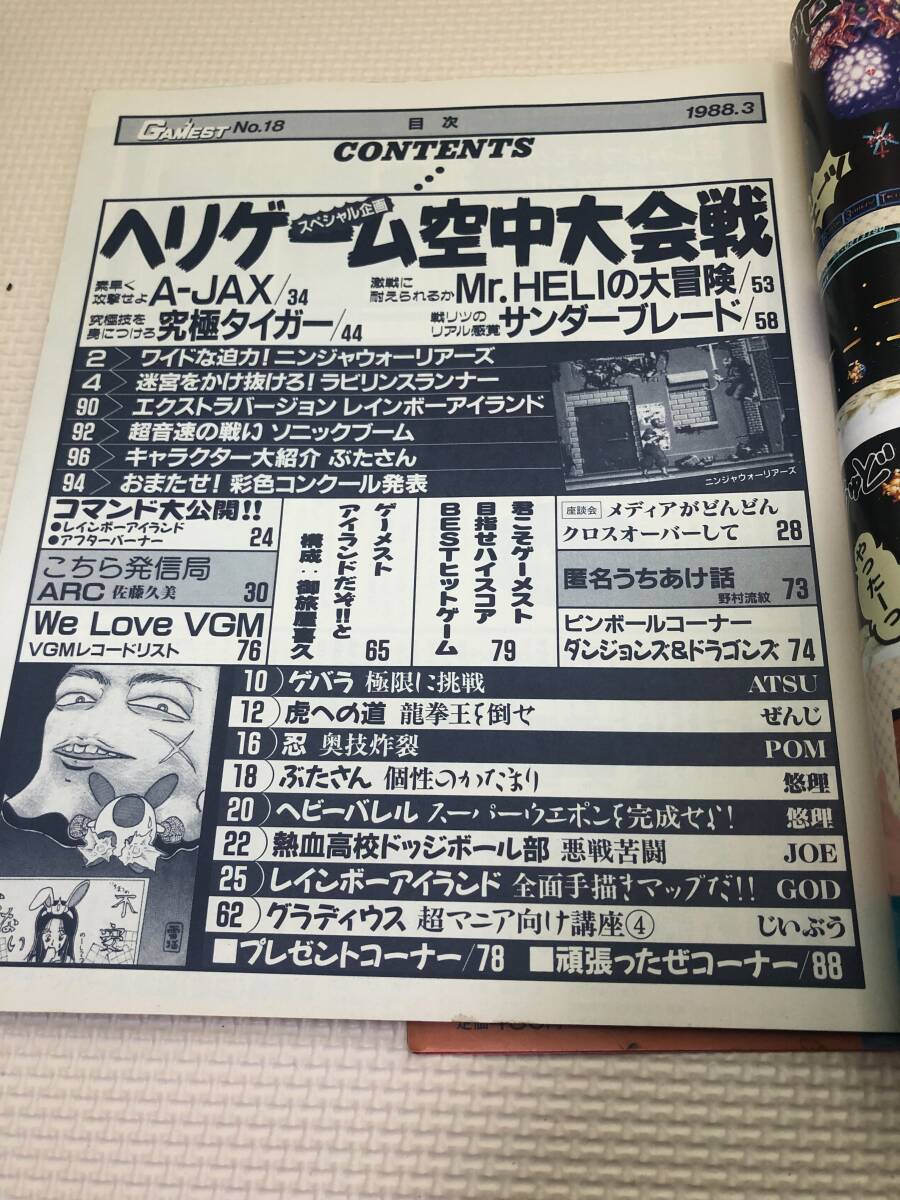 GAMEST No.18
目次
1988.3
CONTENTS
スペシャル企画
ヘリゲーム空中大会戦
素早く
攻撃せよ A-JAX/34
激戦に
耐えられるか Mr.HELIの大冒険/53
究極技を
身につけろ 究極タイガー/44
戦リツの
リアル感覚 サンダーブレード/58
2 ワイドな迫力!ニンジャウォーリアーズ
4 迷宮をかけ抜けろ!ラビリンスランナー
90 エクストラバージョン レインボーアイランド
92 超音速の戦い ソニックブーム
96 キャラクター大紹介 ぶたさん
94 おまたせ!彩色コンクール発表
ニンジャウォーリアーズ
コマンド大公開!!
●レインボーアイランド
●アフターバーナー 24
こちら発信局
ARC 佐藤久美 30
We Love VGM
VGMレコードリスト 76
ゲーメスト
アイランドだぞ!!と
構成:御旅屋喜久
65
君こそゲーメスト
目指せハイスコア
BESTヒットゲーム
79
座談会 メディアがどんどん
クロスオーバーして 28
匿名うちあけ話
野村流紋 73
ピンボールコーナー
ダンジョンズ&ドラゴンズ 74
10 ゲバラ 極限に挑戦 ATSU
12 虎への道 龍拳王を倒せ ぜんじ
16 忍 奥技炸裂 POM
18 ぶたさん 個性のかたまり 悠理
20 ヘビーバレル スーパーウエポンを完成せよ! 悠理
22 熱血高校ドッジボール部 悪戦苦闘 JOE
25 レインボーアイランド 全面手描きマップだ!! GOD
62 グラディウス 超マニア向け講座④ じいぶう
■プレゼントコーナー/78 ■頑張ったぜコーナー/88
やったーっ